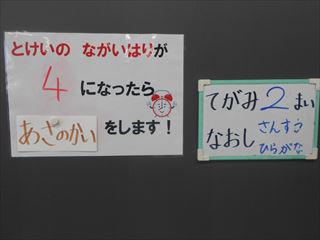 とけいの ながいはりが
4 になったら
あさのかい をします!
てがみ 2 まい
なおし さんすう
ひらがな